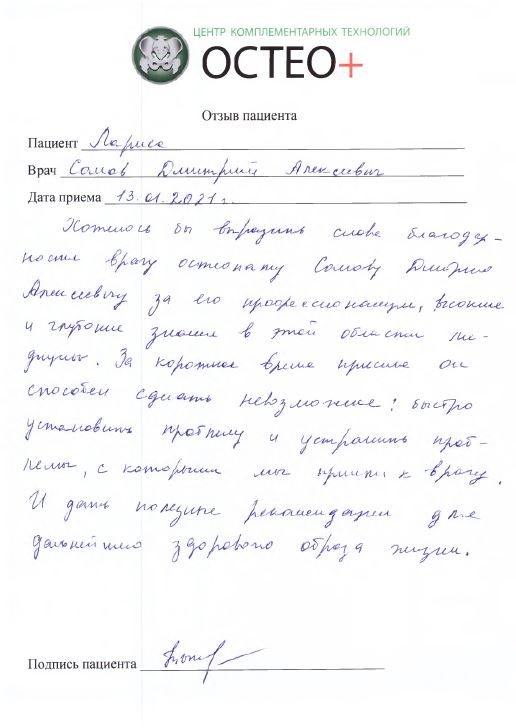 ЦЕНТР КОМПЛЕМЕНТАРНЫХ ТЕХНОЛОГИЙ
ОСТЕО+
Отзыв пациента
Пациент Лариса
Врач Сомов Дмитрий Алексеевич
Дата приема 13.01.2021г.
Хотелось бы выразить слова благодар-
ности врачу остеопату Сомову Дмитрию
Алексеевичу за его профессионализм, высокие
и глубокие знания в этой области ме-
дицины. За короткое время приема он
способен сделать невозможное: быстро
установить проблему и устранить проб-
лемы, с которыми мы пришли к врачу.
И дать полезные рекомендации для
дальнейшего здорового образа жизни.
Подпись пациента